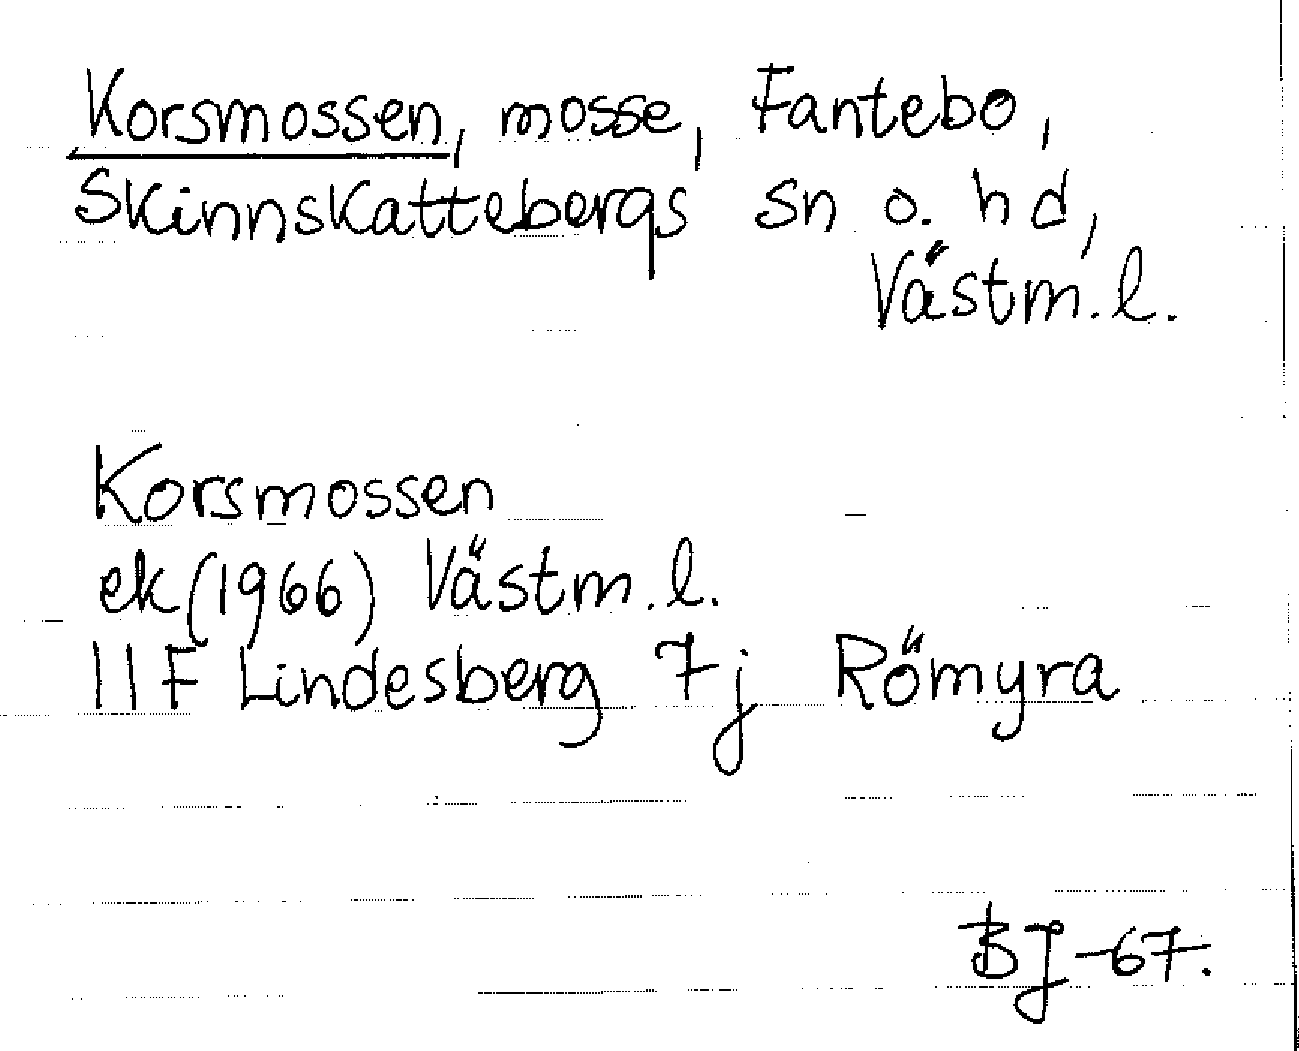 Korsmossen, mosse, Fantebo,
Skinnskattebergs sn o. hd,
Västm. l.
Korsmossen
ek (1966) Västm. l.
11F Lindesberg 7j Römyra
BJ-67.